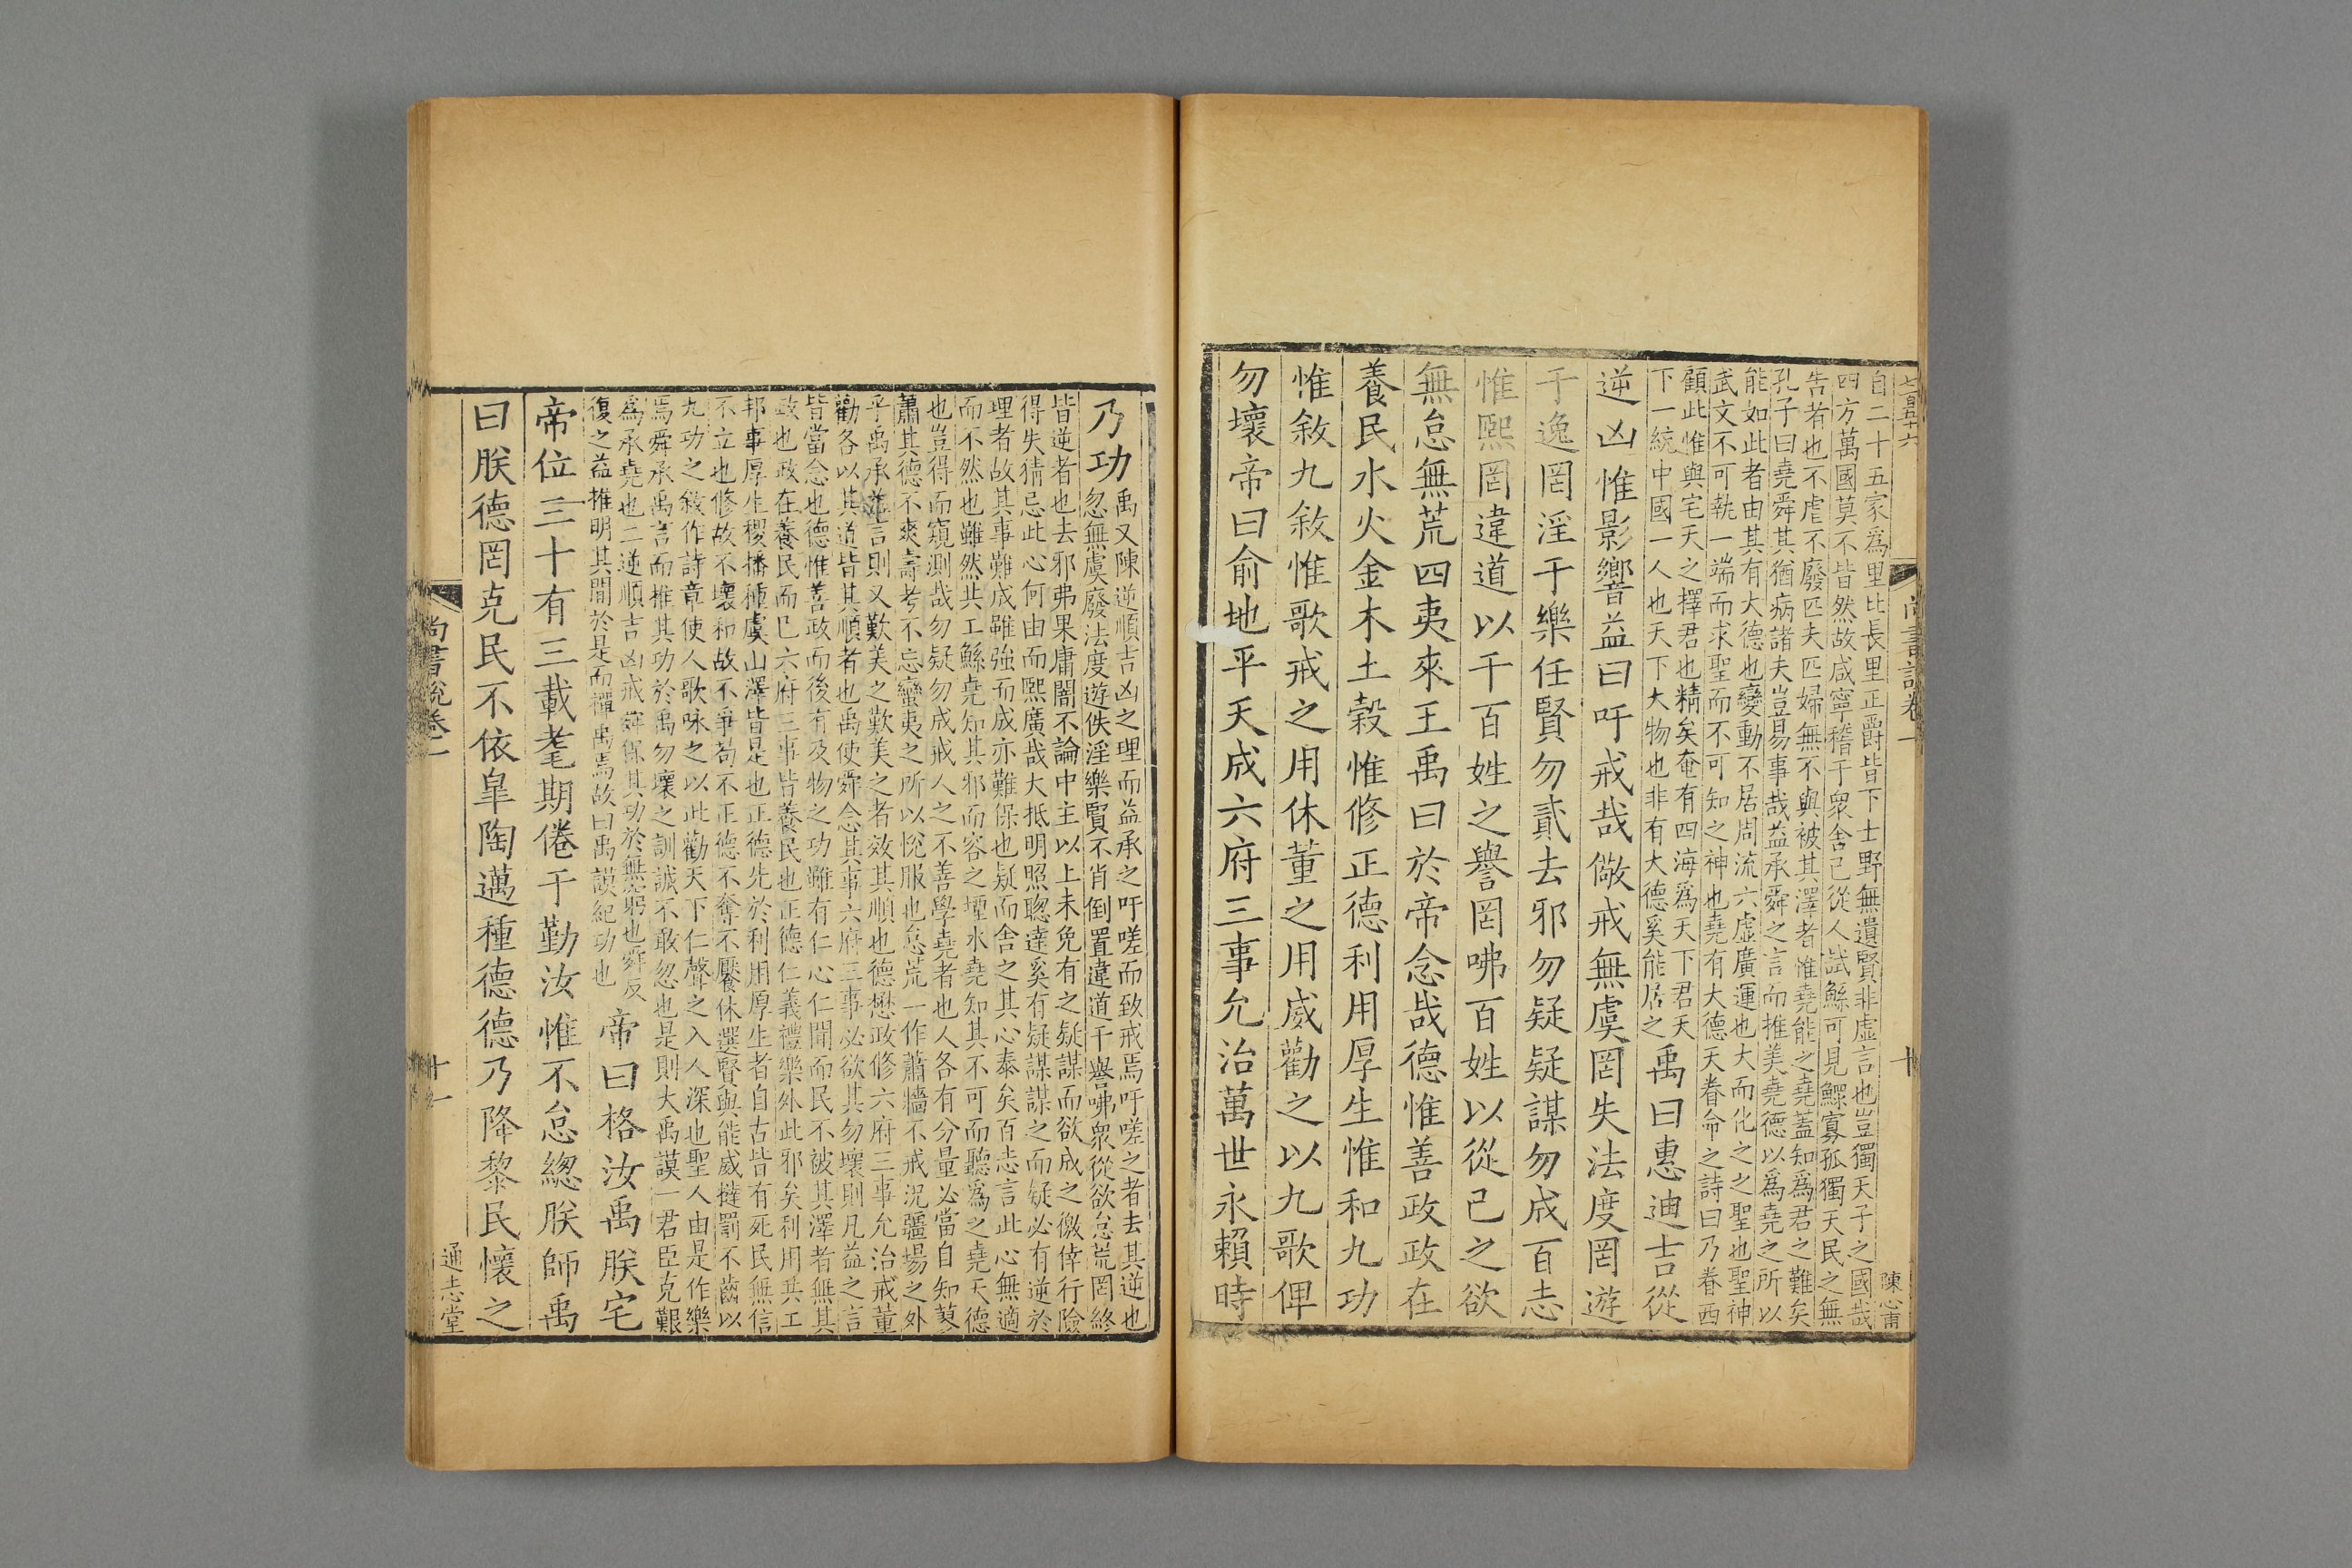 七百五十六
尚書說卷一
十
陳心甫
自二十五家為里比長里正爵皆下士野無遺賢非虛言也豈獨天子之國哉
四方萬國莫不皆然故咸寧稽于衆舍己從人試鯀可見鰥寡孤獨天民之無
告者也不虐不廢匹夫匹婦無不與被其澤者惟堯能之堯蓋知為君之難矣
孔子曰堯舜其猶病諸夫豈易事哉益承舜之言而推美堯德以為堯之所以
能如此者由其有大德也變動不居周流六虛廣運也大而化之之聖也聖神
武文不可執一端而求聖而不可知之神也堯有大德天眷命之詩曰乃眷西
顧此惟與宅天之擇君也精矣奄有四海為天下君天
下一統中國一人也天下大物也非有大德奚能居之
禹曰惠迪吉從
逆凶惟影響益曰吁戒哉儆戒無虞罔失法度罔遊
于逸罔淫于樂任賢勿貳去邪勿疑疑謀勿成百志
惟熙罔違道以干百姓之譽罔咈百姓以從己之欲
無怠無荒四夷來王禹曰於帝念哉德惟善政政在
養民水火金木土穀惟修正德利用厚生惟和九功
惟敘九敘惟歌戒之用休董之用威勸之以九歌俾
勿壞帝曰俞地平天成六府三事允治萬世永賴時
乃功
禹又陳逆順吉凶之理而益承之吁嗟而致戒焉吁嗟之者去其逆也
忽無虞廢法度遊佚淫樂賢不肖倒置違道干譽咈衆從欲怠荒罔終
皆逆者也去邪弗果庸闇不論中主以上未免有之疑謀而欲成之儌倖行險
得失猜忌此心何由而熙廣哉大抵明照聰達奚有疑謀謀之而疑必有逆於
理者故其事難成雖強而成亦難保也疑而舍之其心泰矣百志言此心無適
而不然也雖然共工鯀堯知其邪而容之堙水堯知其不可而聽為之堯天德
也豈得而窺測哉勿疑勿成戒人之不善學堯者也人各有分量必當自知蓼
蕭其德不爽壽考不忘蠻夷之所以悅服也怠荒一作蕭牆不戒況疆場之外
乎禹承益言則又歎美之歎美之者效其順也德懋政修六府三事允治戒董
勸各以其道皆其順者也禹使舜念其事六府三事必欲其勿壞則凡益之言
皆當念也德惟善政而後有及物之功雖有仁心仁聞而民不被其澤者無其
政也政在養民而已六府三事皆養民也正德仁義禮樂外此邪矣利用共工
邦事厚生稷播種虞山澤皆是也正德先於利用厚生者自古皆有死民無信
不立也修故不壞和故不爭苟不正德不奪不饜休選賢與能威撻罰不齒以
九功之敘作詩章使人歌咏之以此勸天下仁聲之入人深也聖人由是作樂
焉舜承禹言而推其功於禹勿壞之訓誠不敢忽也是則大禹謨一君臣克艱
為承堯也二逆順吉凶戒舜保其功於無窮也舜反
復之益推明其間於是而禪禹焉故曰禹謨紀功也
帝曰格汝禹朕宅
帝位三十有三載耄期倦于勤汝惟不怠總朕師禹
曰朕德罔克民不依皐陶邁種德德乃降黎民懷之
尚書說卷一
十一
通志堂